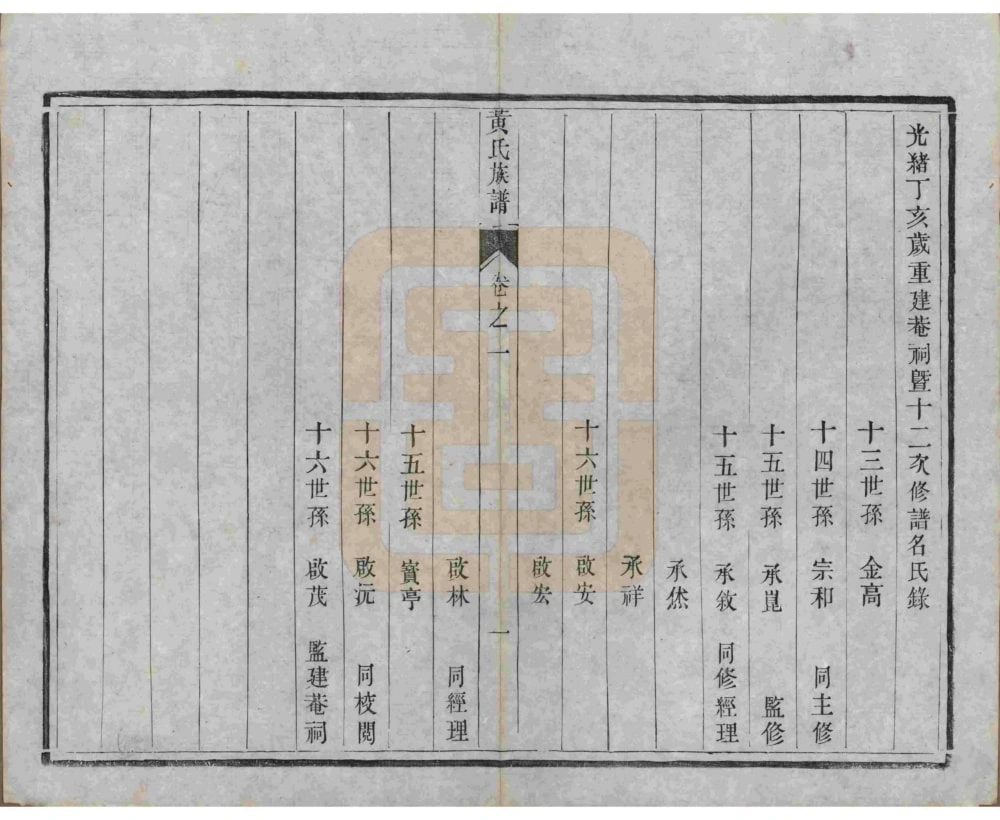 光緒丁亥歲重建菴祠暨十二次修譜名氏錄
十三世孫 金高
十四世孫 宗和 同主修
十五世孫 承崑 監修
十五世孫 承敘 同修經理
承烋
承祥
十六世孫 啟安
啟宏
黃氏族譜 卷之一 一
啟林 同經理
十五世孫 寶亭
十六世孫 啟沅 同校閱
十六世孫 啟茂 監建菴祠